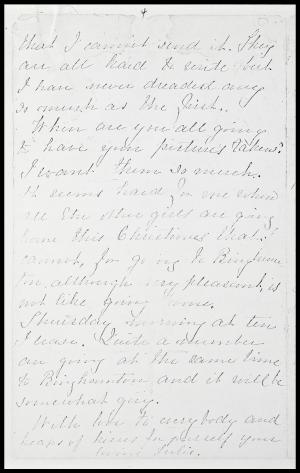 4
that I cannot send it. They
are all hard to write but
I have never dreaded any
so much as the first.
When are you all going
to have your pictures taken?
I want them so much.
It seems hard for me when
all the other girls are going
home this Christmas that I
cannot, for going to Bingham-
ton, although very pleasant, is
not like going home.
Thursday morning at ten
I leave. Quite a number
are going at the same time
to Binghamton and it will be
somewhat gay.
With love to everybody and
heaps of kisses for yourself your
Julie.